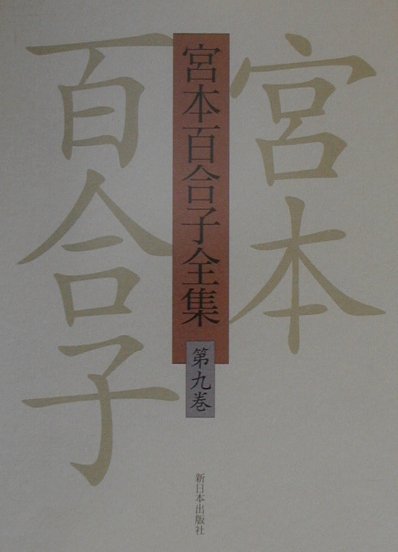 宮本
百合子
宮本百合子全集
第九巻
新日本出版社